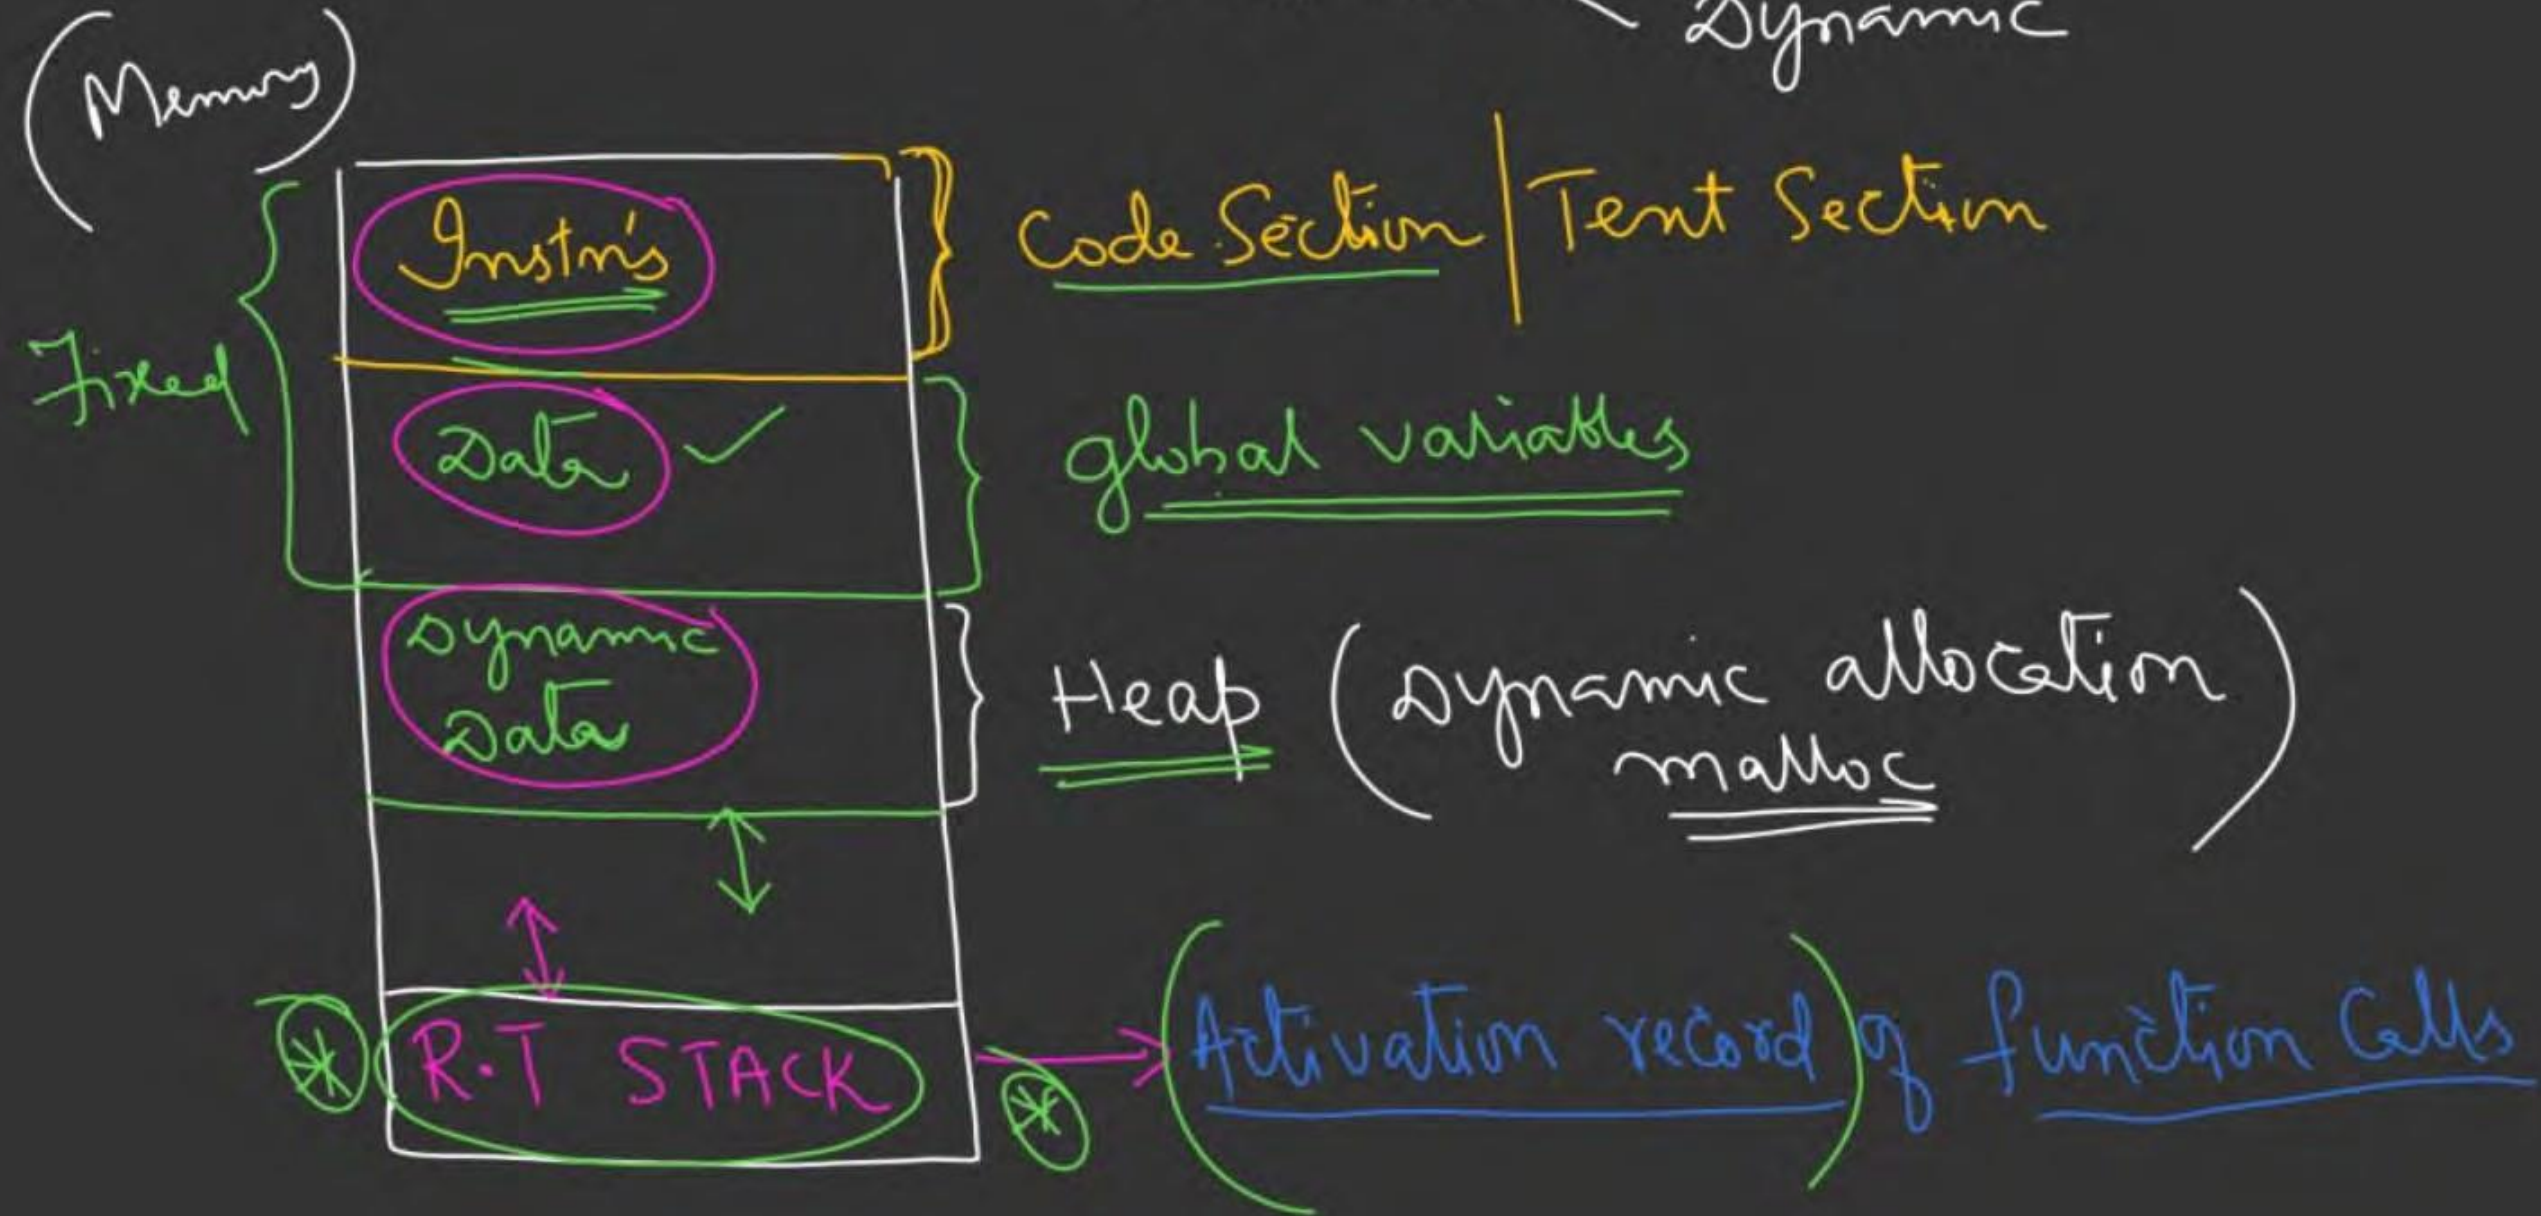 Dynamic
(Memory)
Instn's
Code Section | Text Section
Fixed
Data ✓
global variables
Dynamic
Data
Heap (Dynamic allocation
malloc)
R.T STACK
(Activation record) of function Calls